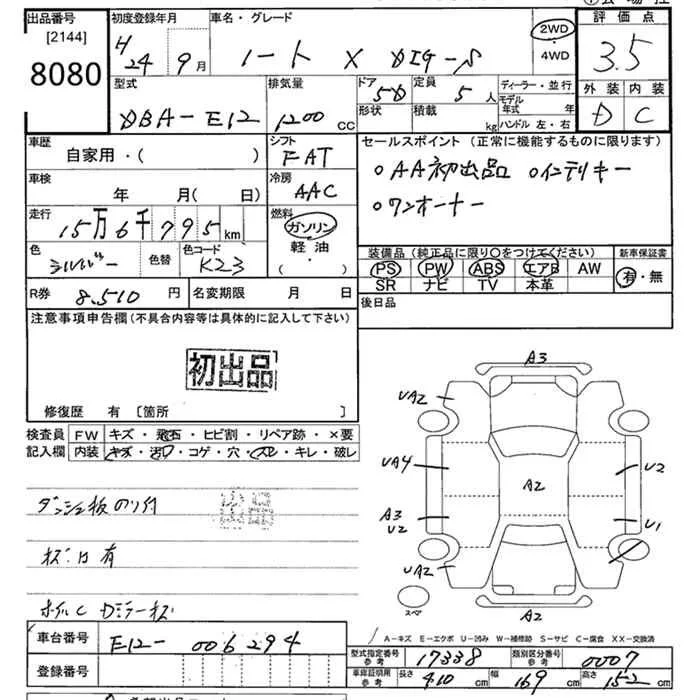 出品番号 初度登録年月 車名・グレード 2WD 評価点
[2144] H 24 9月 ノート X DIG-S ・4WD 3.5
8080
型式 排気量 ドア 5D 定員 5人 ディーラー・並行 外装 内装
DBA-E12 1200 CC 形状 積載 kg モデル年式 年 D C
ハンドル 左・右
車歴 自家用・( ) シフト FAT セールスポイント(正常に機能するものに限ります)
車検 年 月( 日) 冷房 AAC ○AA初出品 ○インテリキー
走行 15万6千795km 燃料 ガソリン ○ワンオーナー
軽油
・( )
色 シルバー 色替 色コード K23 装備品(純正品に限り○をつけてください) 新車保証書
PS PW ABS エアB AW 有・無
SR ナビ TV 本革
R券 8,510円 名変期限 月 日 後日品
注意事項申告欄(不具合内容等は具体的に記入して下さい)
初出品
修復歴 有 [箇所 ]
検査員 FW キズ・飛石・ヒビ割・リペア跡・×要
記入欄 内装 キズ・汚レ・コゲ・穴・スレ・キレ・破レ
ダッシュ板のり付
ホイルC Dミラーキズ
A3
UA2
UA4 U2
A2
A3 U2 U1
UA2
スペア A2
A-キズ E-エクボ U-凹み W-補修跡 S-サビ C-腐食 XX-交換済
車台番号 E12-006294
登録番号
型式指定番号 参考 17338 類別区分番号 参考 0007
車庫証明用 参考 長さ 410cm 幅 169cm 高さ 152cm